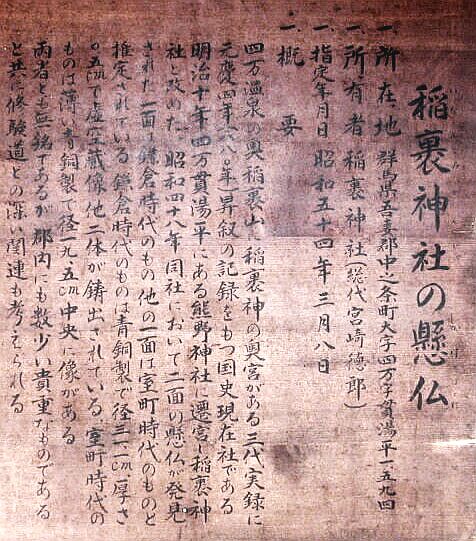 稲裹神社の懸仏
一、所在地 群馬県吾妻郡中之条町大字四万字貫湯平一五九四
一、所有者 稲裹神社(総代宮崎徳郎)
一、指定年月日 昭和五十四年三月八日
一、概要
四万温泉の奥稲裹山に稲裹神の奥宮がある三代実録に
元慶四年(八八〇年)昇叙の記録をもつ国史現在社である
明治十年四万貫湯平にある熊野神社に遷宮し稲裹神
社と改めた 昭和四十八年同社において二面の懸仏が発見
された 一面は鎌倉時代のもの他の一面は室町時代のものと
推定されている 鎌倉時代のものは青銅製で径三一㎝厚さ
〇.五㎝で虚空蔵像他二体が鋳出されている、室町時代の
ものは薄い青銅製で径一九.五㎝中央に像がある
両者とも無銘であるが郡内にも数少い貴重なものである
と共に修験道との深い関連も考えられる